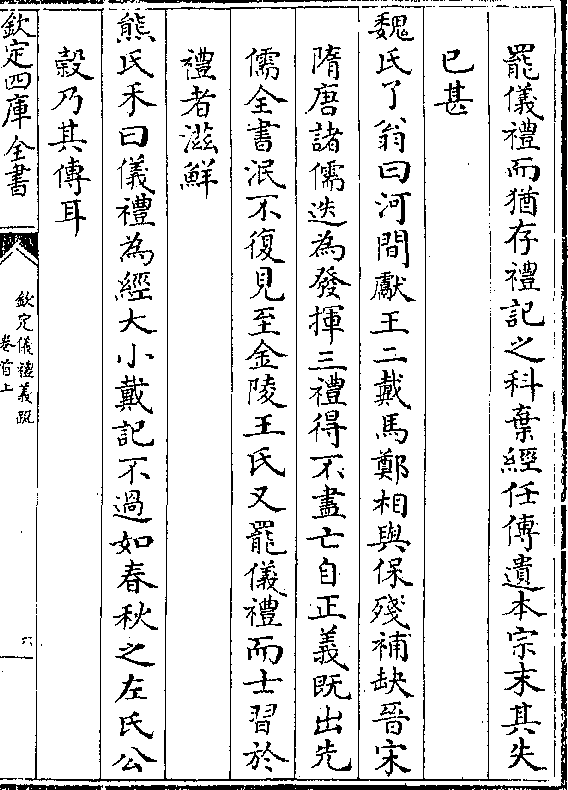 罷儀禮而猶存禮記之科棄經任傳遺本宗末其失
已甚
魏氏了翁曰河間獻王二戴馬鄭相與保殘補缺晉宋
隋唐諸儒迭為發揮三禮得不盡亡自正義既出先
儒全書泯不復見至金陵王氏又罷儀禮而士習於
禮者滋鮮
熊氏禾曰儀禮為經大小戴記不過如春秋之左氏公
穀乃其傳耳
欽定四庫全書
欽定儀禮義疏
卷首上
六